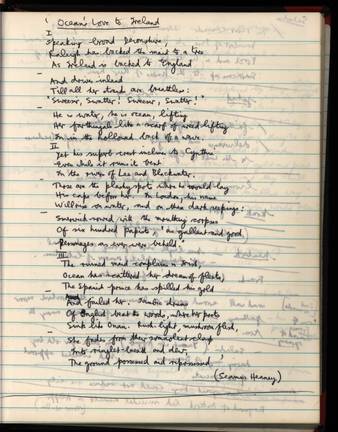 Ocean's Love to Ireland
I
Speaking broad Devonshire,
Raleigh has backed the maid to a tree
As Ireland is backed to England
And drives inland
Till all her strands are breathless:
'Sweesir, Swatter! Sweesir, Swatter!'
He is water, he is ocean, lifting
Her farthingale like a scarf of weed lifting
In the front of a wave.
II
Yet his superb crest inclines to Cynthia
Even while it runs its bent
In the rivers of Lee and Blackwater.
Those are the plashy spots where he would lay
His cape before her. In London, his name
Will rise on water, and on these dark seepings:
Smerwick sowed with the mouthing corpses
Of six hundred papists, 'as gallant and good
Personages as ever were beheld.'
III
The ruined maid complains in Irish,
Ocean has scattered her dream of fleets,
The Spanish prince has spilled his gold
And failed her. Iambic drums
Of English beat the woods where her poets
Sink like Onan. Rush-light, mushroom-flesh,
She fades from their somnolent clasp
Into ringlet-breath and dew,
The ground possessed and repossessed.
(Seamus Heaney)